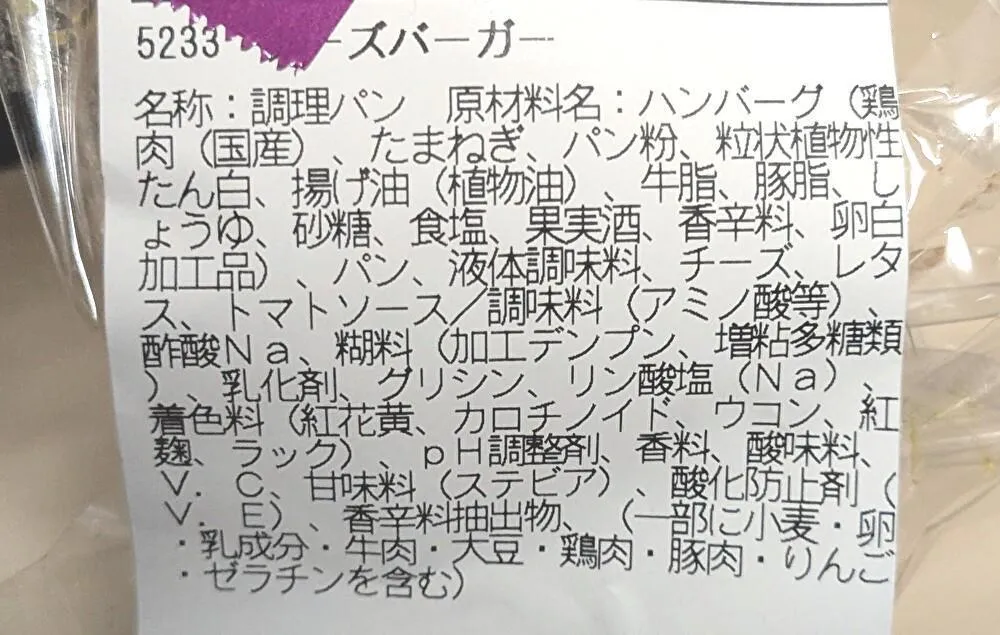 5233 ーズバーガー
名称：調理パン　原材料名：ハンバーグ（鶏
肉（国産）、たまねぎ、パン粉、粒状植物性
たん白、揚げ油（植物油）、牛脂、豚脂、し
ょうゆ、砂糖、食塩、果実酒、香辛料、卵白
加工品）、パン、液体調味料、チーズ、レタ
ス、トマトソース／調味料（アミノ酸等）、
酢酸Ｎａ、糊料（加工デンプン、増粘多糖類
）、乳化剤、グリシン、リン酸塩（Ｎａ）、
着色料（紅花黄、カロチノイド、ウコン、紅
麹、ラック）、ｐＨ調整剤、香料、酸味料、
Ｖ．Ｃ、甘味料（ステビア）、酸化防止剤（
Ｖ．Ｅ）、香辛料抽出物、（一部に小麦・卵
・乳成分・牛肉・大豆・鶏肉・豚肉・りんご
・ゼラチンを含む）